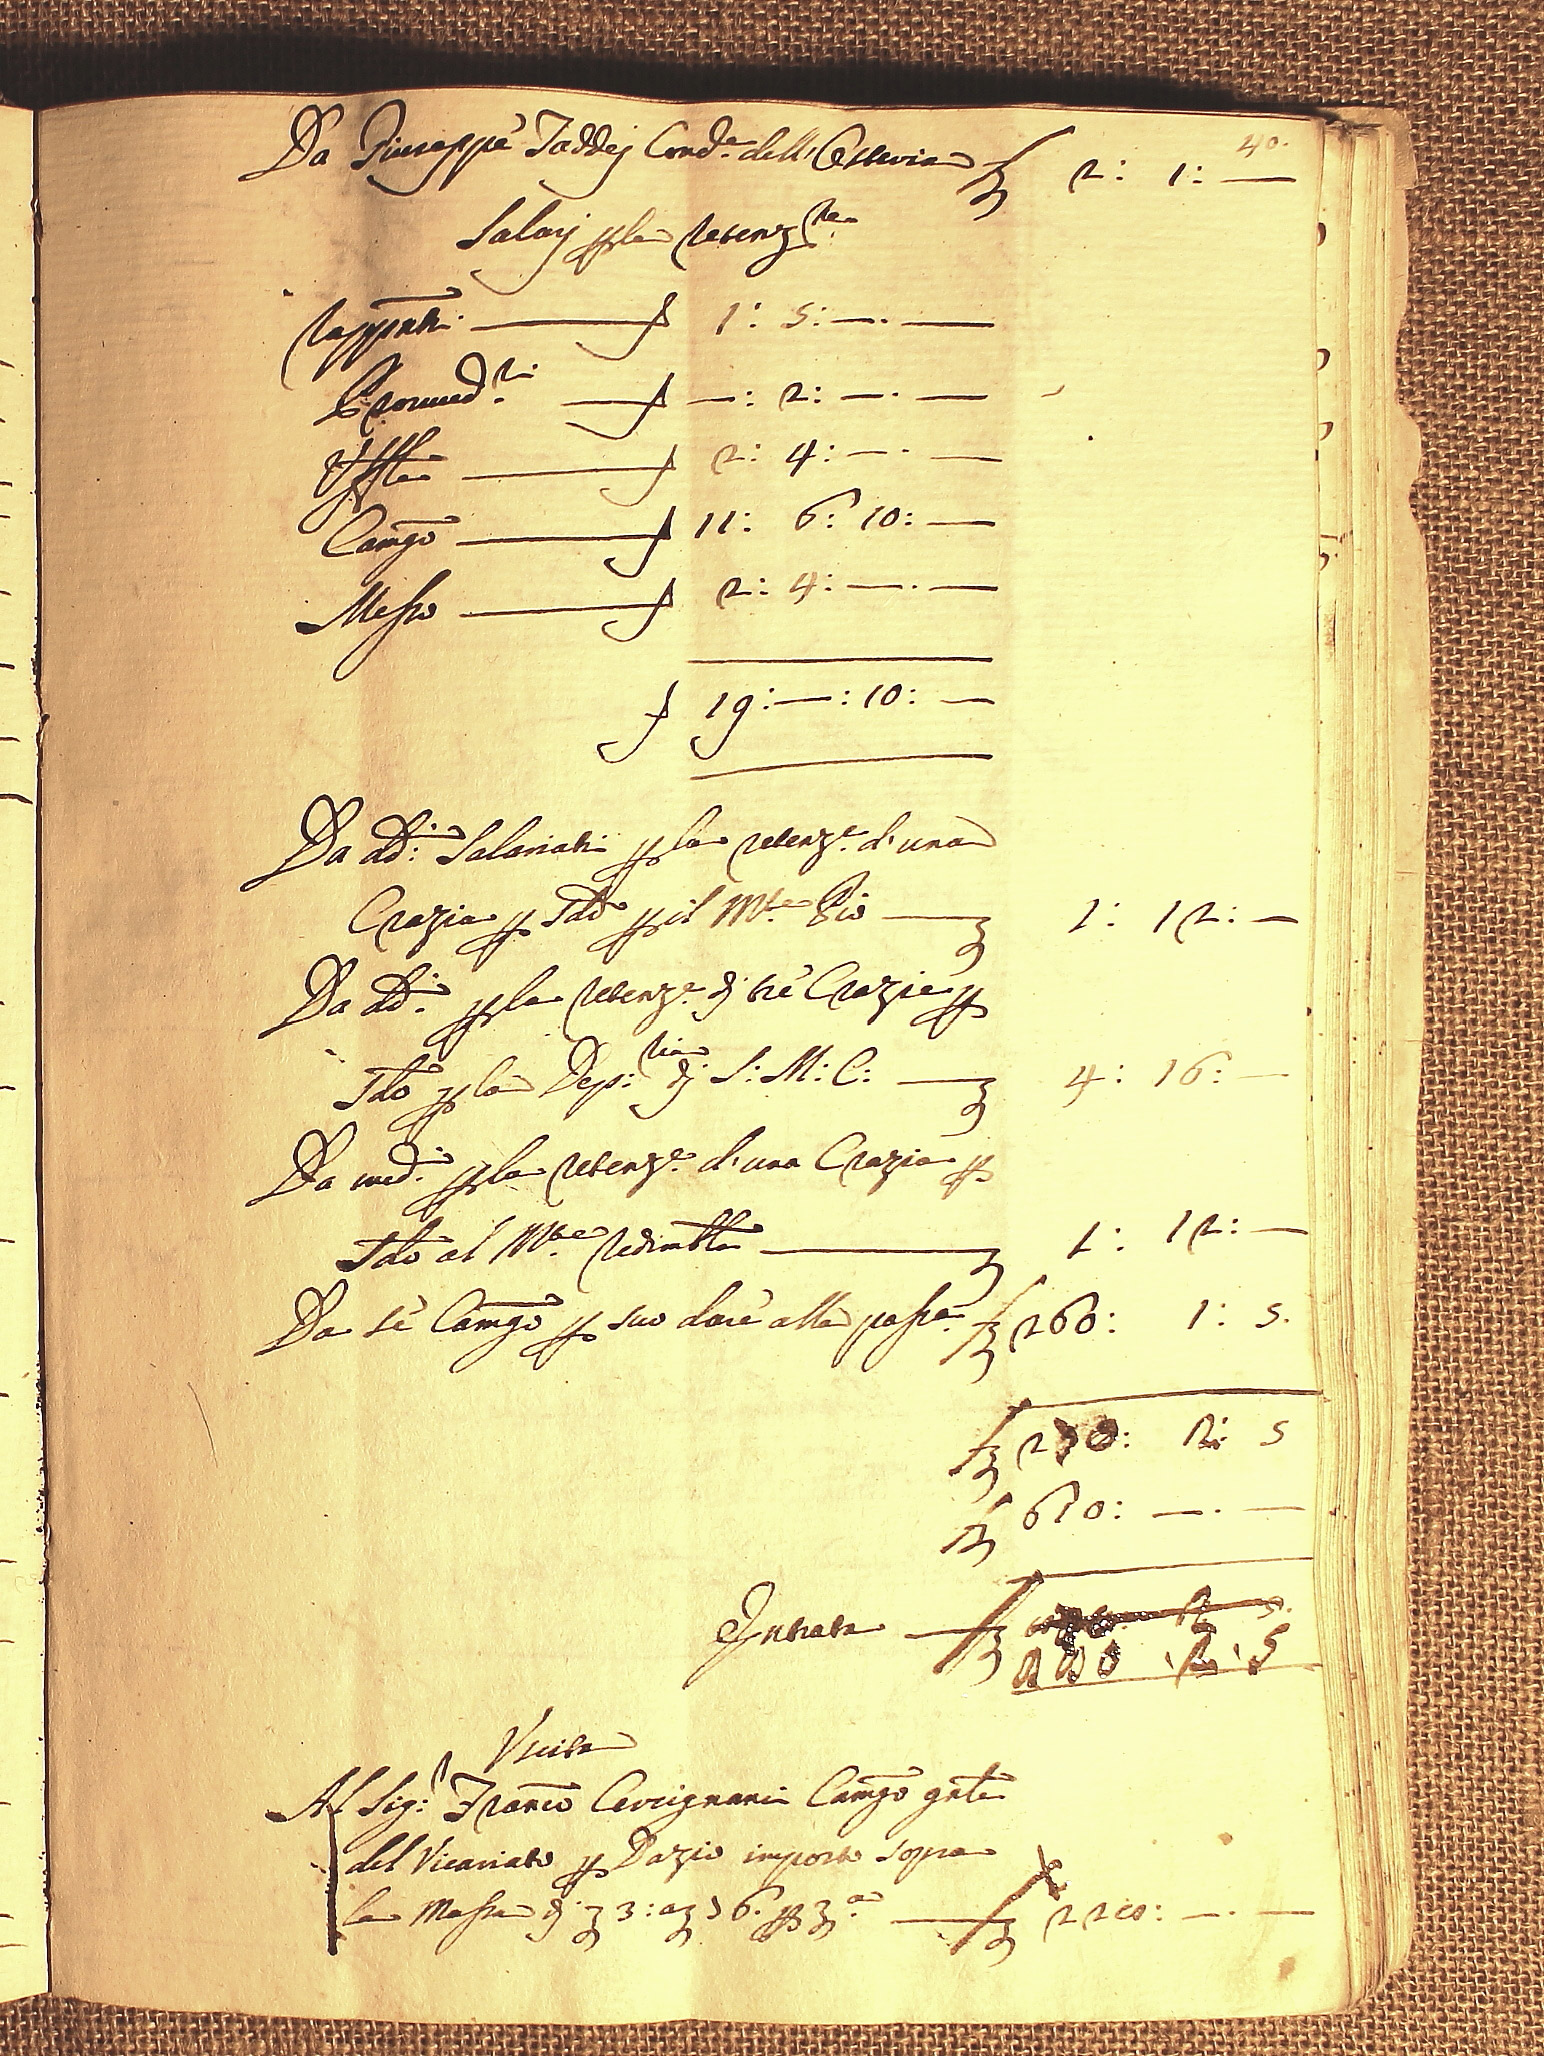 40.
Da Giuseppè Taddej Cond.e dell'Osteria 2: 1: —
Salarj p la retenz.ne
Rapp.nti — 1: 5: —. —
Provved.ri — —: 2: —. —
— 2: 4: —. —
Camgo — 11: 6: 10: —
Messo — 2: 4: —. —
19: —: 10: —
Da dd.i Salariati p la retenz.e d'una
Crazia p Tdo p il M.te Pio — 1: 12: —
Da dd.i p la retenz.e dj trè Crazie p
Tdo p la Dep: dj S: M: C: — 4: 16: —
Da med.i p la retenz.e d'una Crazia p
Tdo al M.te Redimble — 1: 12: —
Da sè Camgo p suo darè alla passa 260: 1: 5.
2: 5
610: —. —
Entrata —
2. 5
Uscita
Al Sig.r Franco Cervignani Camgo gnle
del Vicariato p Dazio imposto sopra
la Massa dj — —. —